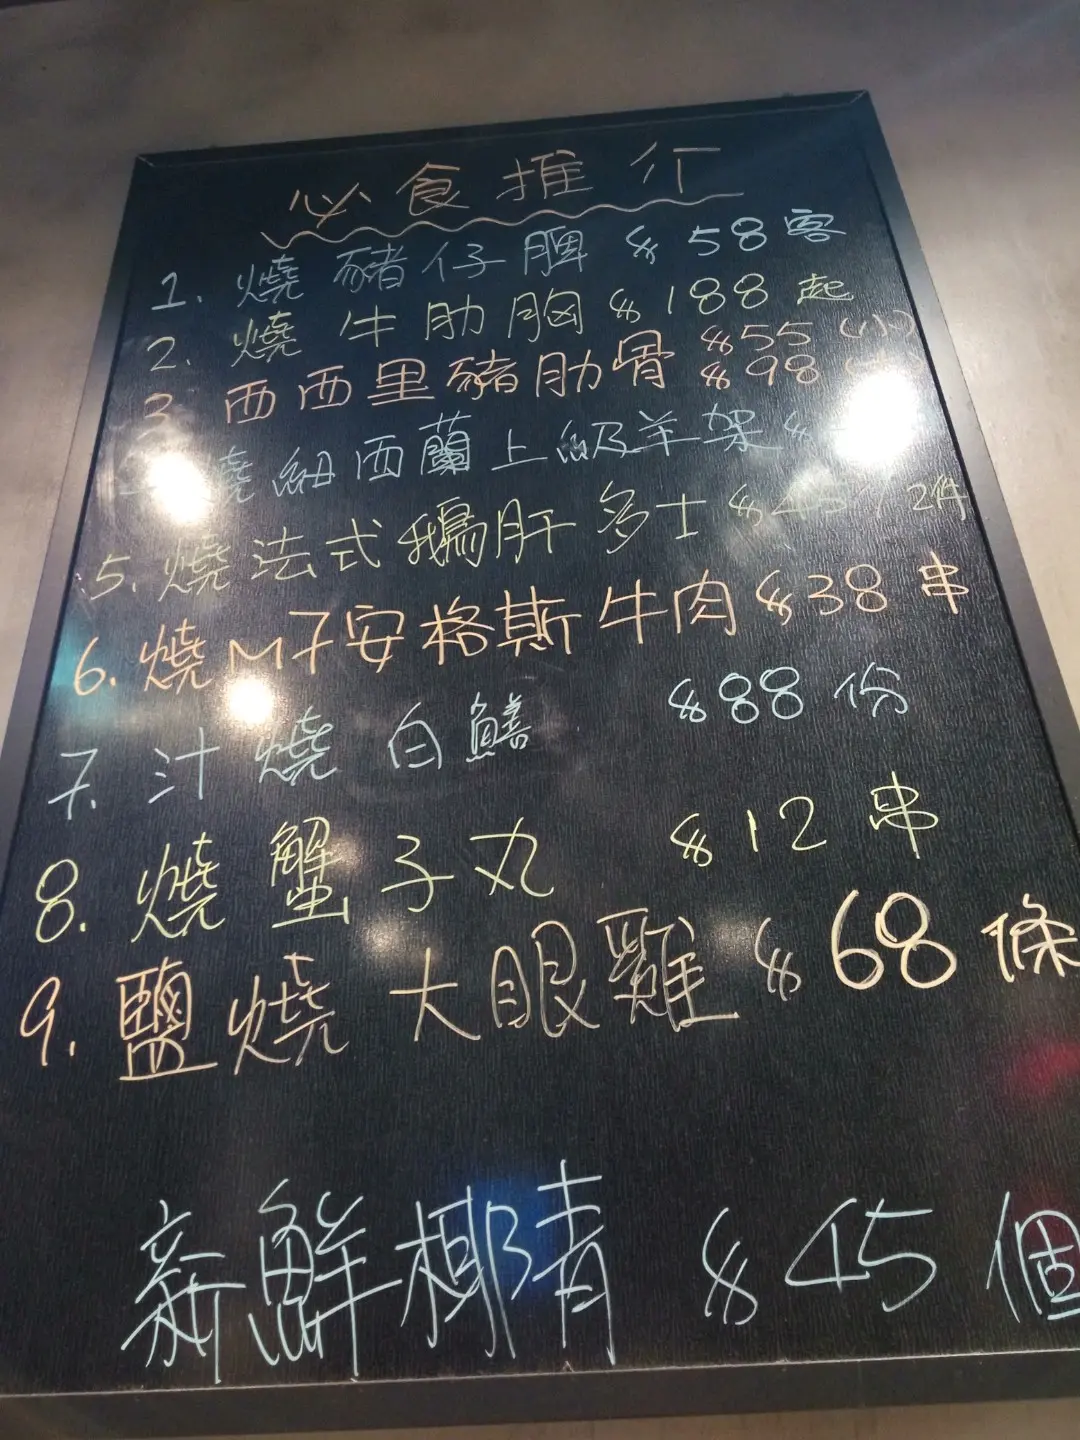 必食推介
1. 燒豬仔脾 $58客
2. 燒牛肋胸 $188起
3. 西西里豬肋骨 $55 (小)
$98
燒紐西蘭上級羊架 $
5. 燒法式鵝肝多士 $45/2件
6. 燒M7安格斯牛肉 $38串
7. 汁燒白鱔 $88份
8. 燒蟹子丸 $12串
9. 鹽燒大眼雞 $68條
新鮮椰青 $45個